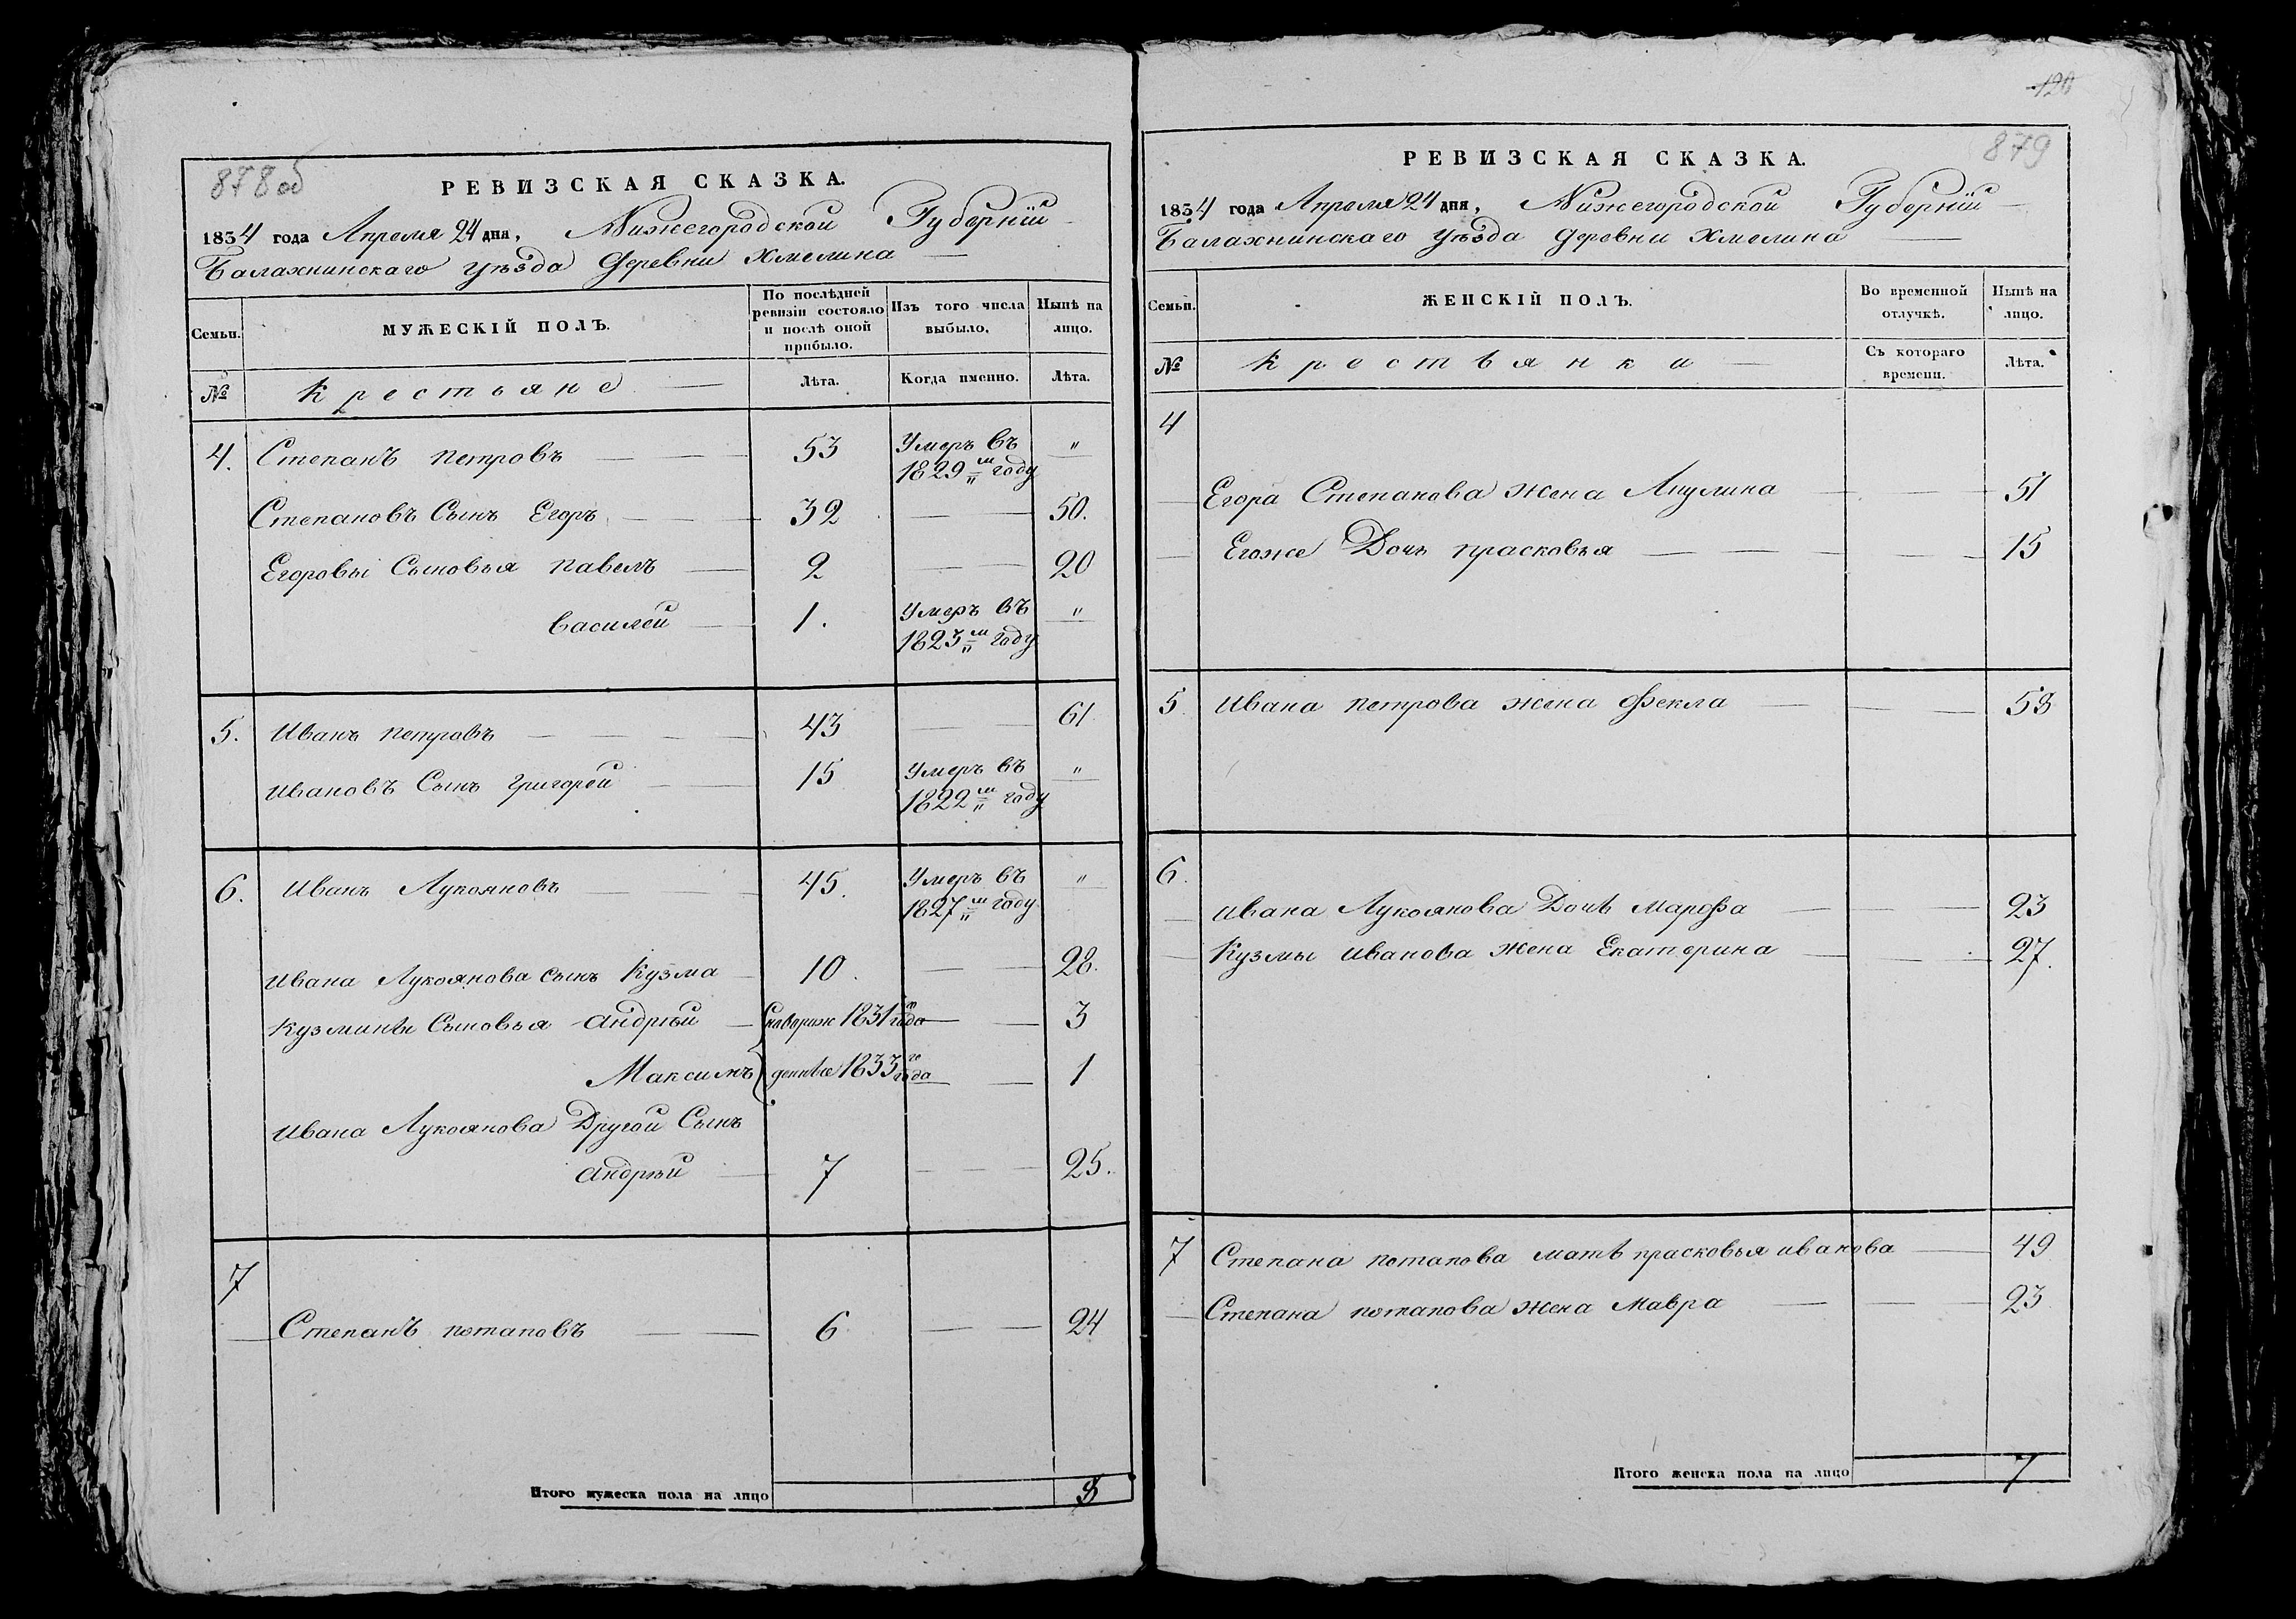 878 об
РЕВИЗСКАЯ СКАЗКА.
1834 года Апреля 24 дня, Нижегородской Губерніи
Балахнинскаго уѣзда Деревни Хмелина
Семьи.
МУЖЕСКІЙ ПОЛЪ.
По послѣдней ревизіи состояло и послѣ оной прибыло.
Изъ того числа выбыло.
Нынѣ на лицо.
№
Крестьяне
Лѣта.
Когда именно.
Лѣта.
4. Степанъ Петровъ 53 Умеръ въ 1829м году "
Степановъ Сынъ Егоръ 32 50.
Егоровы Сыновья Павелъ 2 20
Василей 1. Умеръ въ 1823м году "
5. Иванъ Петровъ 43 61
Ивановъ Сынъ Григорей 15 Умеръ въ 1822м году "
6. Иванъ Лукояновъ 45. Умеръ въ 1827м году "
Ивана Лукоянова сынъ Кузма 10. 28.
Кузмины Сыновья Андрѣй 1831го года 3
Максимъ 1833го года 1
Ивана Лукоянова Другой Сынъ
Андрѣй 7 25.
7
Степанъ Потаповъ 6 24
Итого мужеска пола на лицо 8
120
879
РЕВИЗСКАЯ СКАЗКА.
1834 года Апреля 24 дня, Нижегородской Губерніи
Балахнинскаго уѣзда Деревни Хмелина
Семьи.
ЖЕНСКІЙ ПОЛЪ.
Во временной отлучкѣ.
Нынѣ на лицо.
№
Крестьянки
Съ котораго времени.
Лѣта.
4
Егора Степанова жена Акулина 51
Егоже Дочь Прасковья 15
5 Ивана Петрова жена Фекла 58
6.
Ивана Лукоянова Дочь Марфа 23
Кузмы Иванова жена Екатерина 27.
7 Степана Потапова мать Прасковья Иванова 49
Степана Потапова жена Мавра 23
Итого женска пола на лицо 7